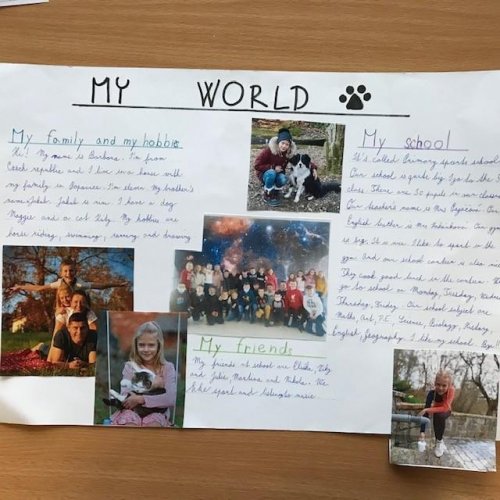 MY WORLD
My family and my hobbies
Hi! My name is Barbora. I'm from
Czech republic and I live in a house with
my family in Popovice. I'm eleven. My brother's
name Jakub. Jakub is nine. I have a dog
Maggie and a cat Lily. My hobbies are
horse riding, swimming, running and drawing
My school
It's called Primary sports school.
Our school is quite big. I go to the
class. There are 30 pupils in our classroom
Our teacher's name is Mrs
English teacher is Mrs Our gym
is big. It is nice. I like to sport in the
gym. And our school canteen is also nice
They cook good lunch in the canteen. We
go to school on Monday, Tuesday, Wednesday
Thursday, Friday. Our school subject are
Maths, Art, P.E., Science, Biology, History,
English, Geography. I like my school. Bye!!
My friends
My friends at school are Eliška, Viky
and Julie, Martina and Nikola. We
like sport and listening music